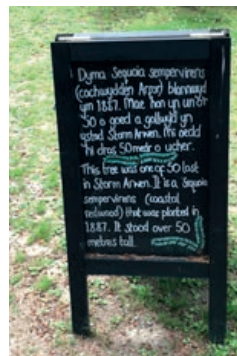 Dyma Sequoia sempervirens
(cochwydden Arfor) blannwyd
ym 1887. Mae hon yn un o'r
50 o goed a gollwyd yn
ystod Storm Arwen. Mi oedd
hi dros 50 metr o uchder.
This tree was one of 50 lost
in Storm Arwen. It is a Sequoia
sempervirens (coastal
redwood) that was planted in
1887. It stood over 50
metres tall.